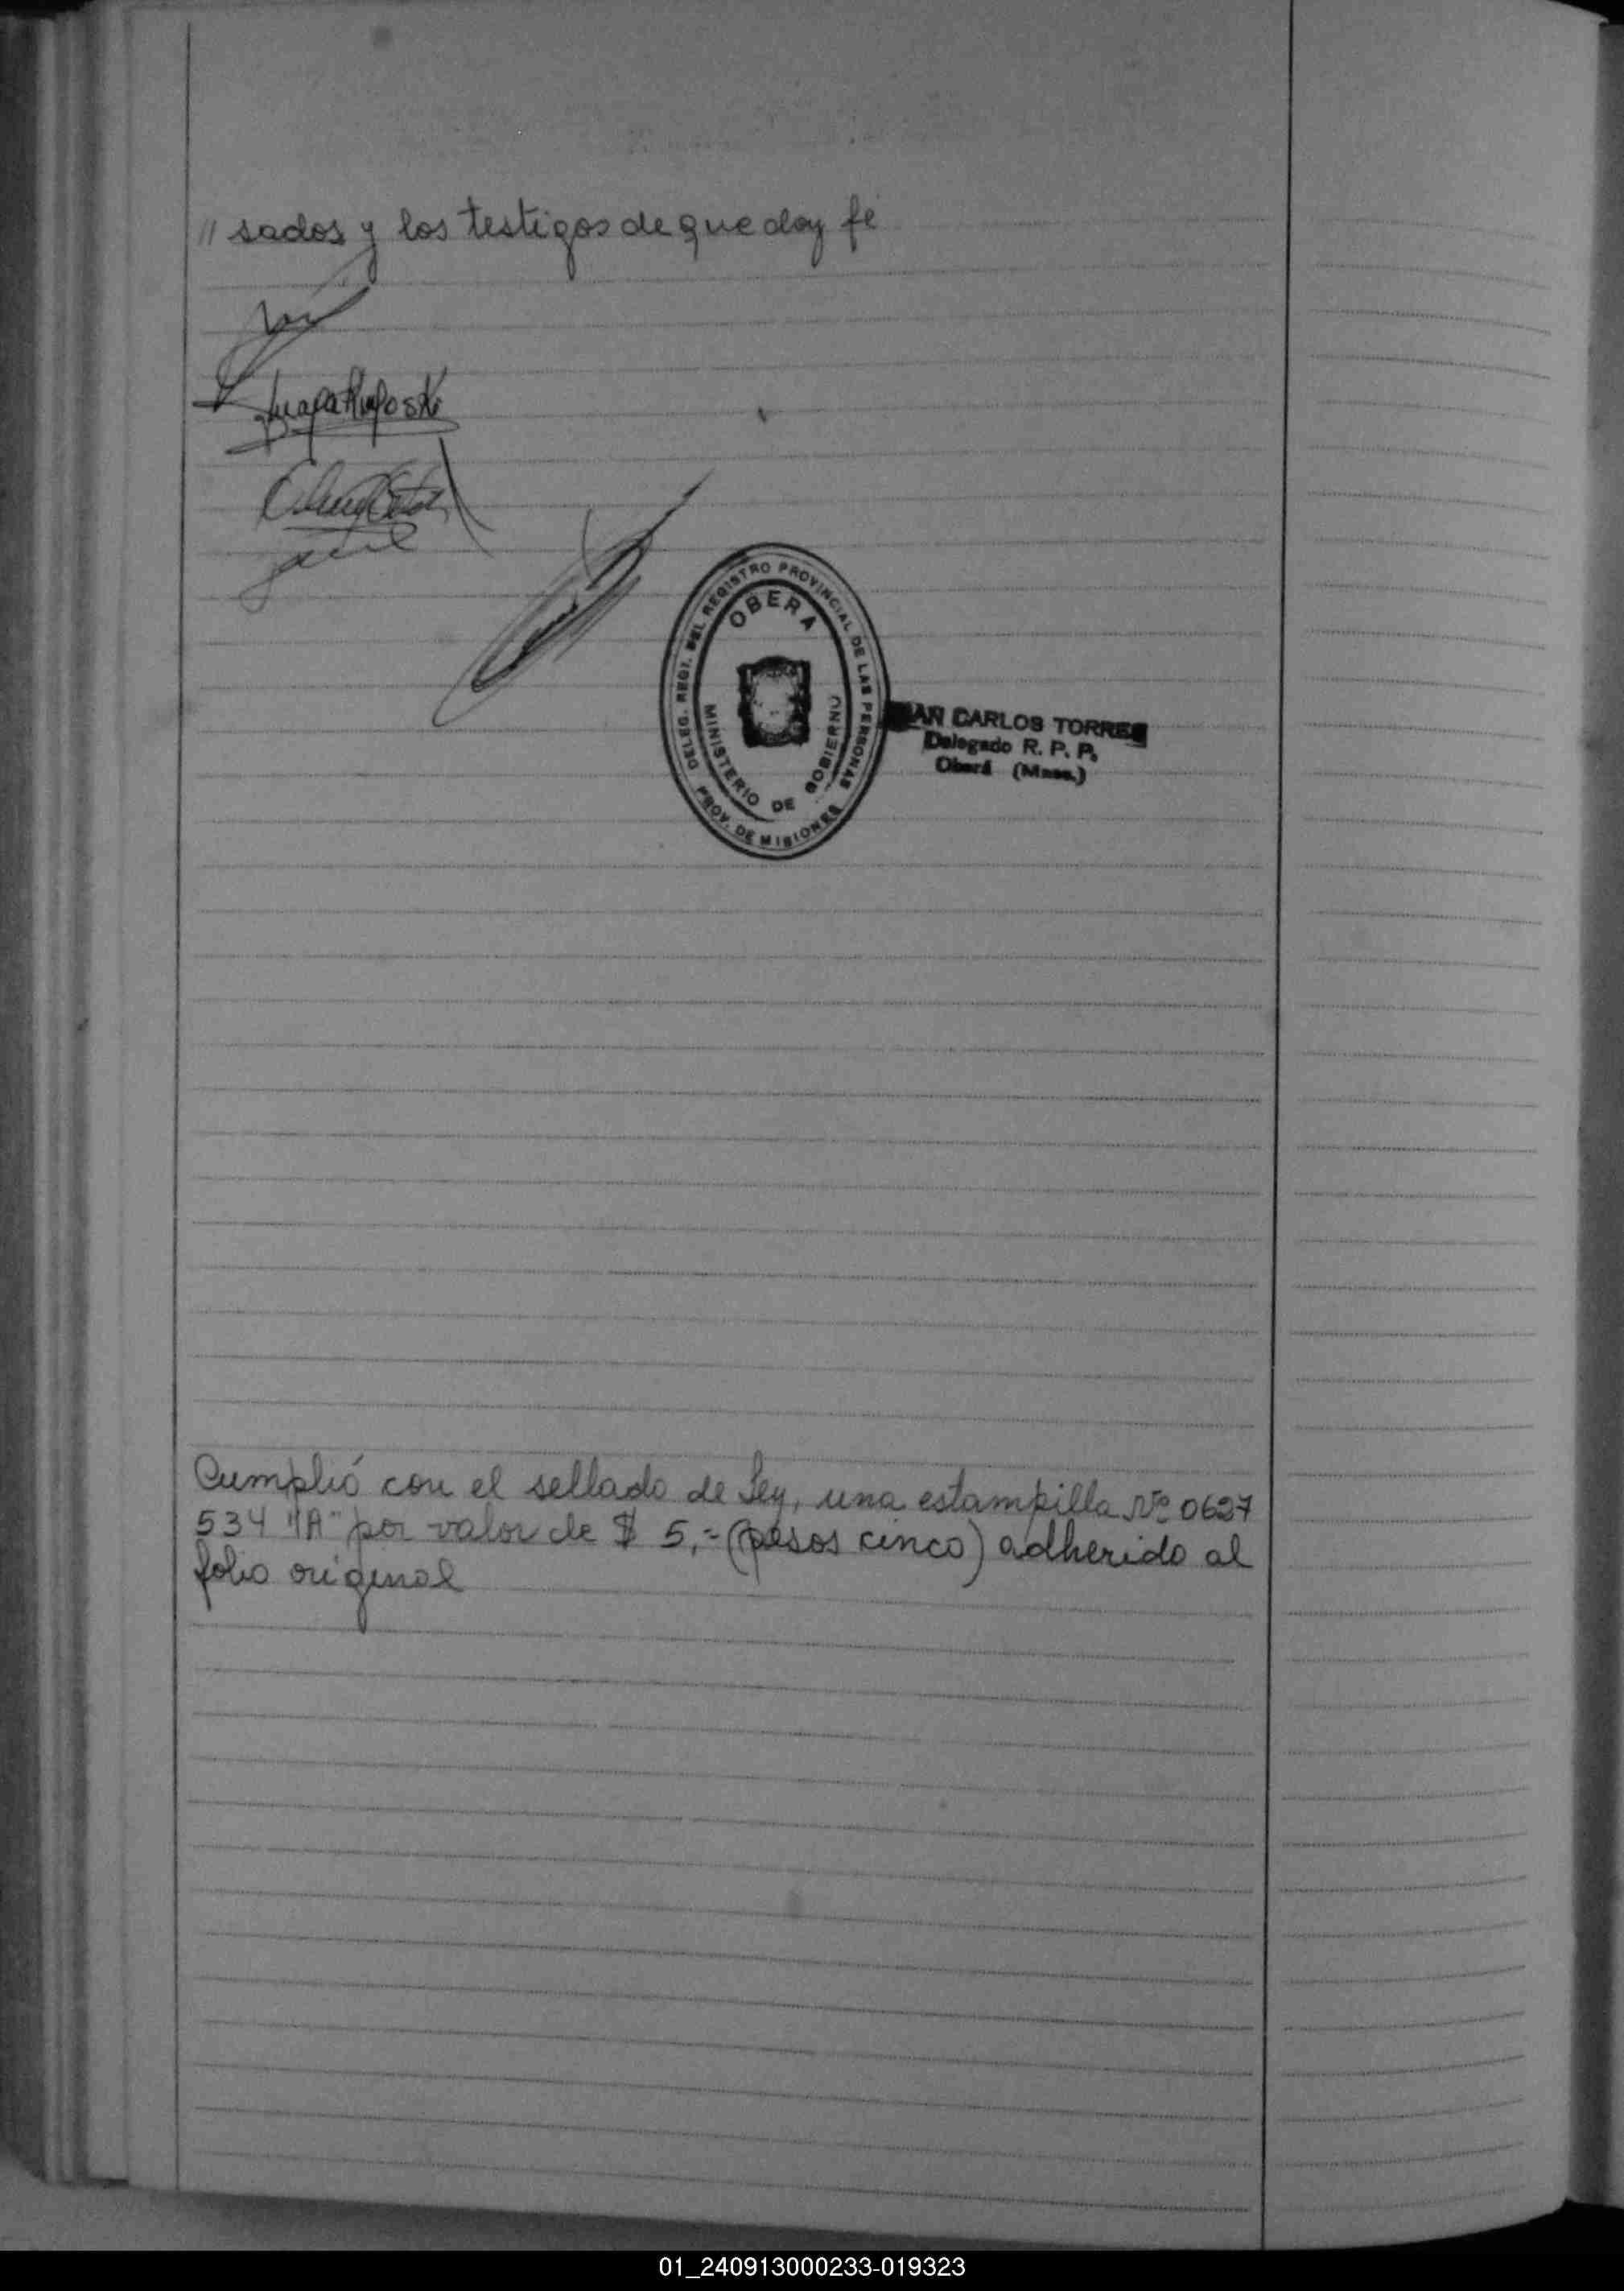 // sados y los testigos de que doy fé
DELEG. REGI. DEL REGISTRO PROVINCIAL DE LAS PERSONAS
OBERA
MINISTERIO DE GOBIERNO
PROV. DE MISIONES
AN CARLOS TORRES
Delegado R. P. P.
Oberá (Mnes.)
Cumplió con el sellado de Ley, una estampilla Nº 0627
534 "A" por valor de $ 5,= (pesos cinco) adherido al
folio original
01_240913000233-019323